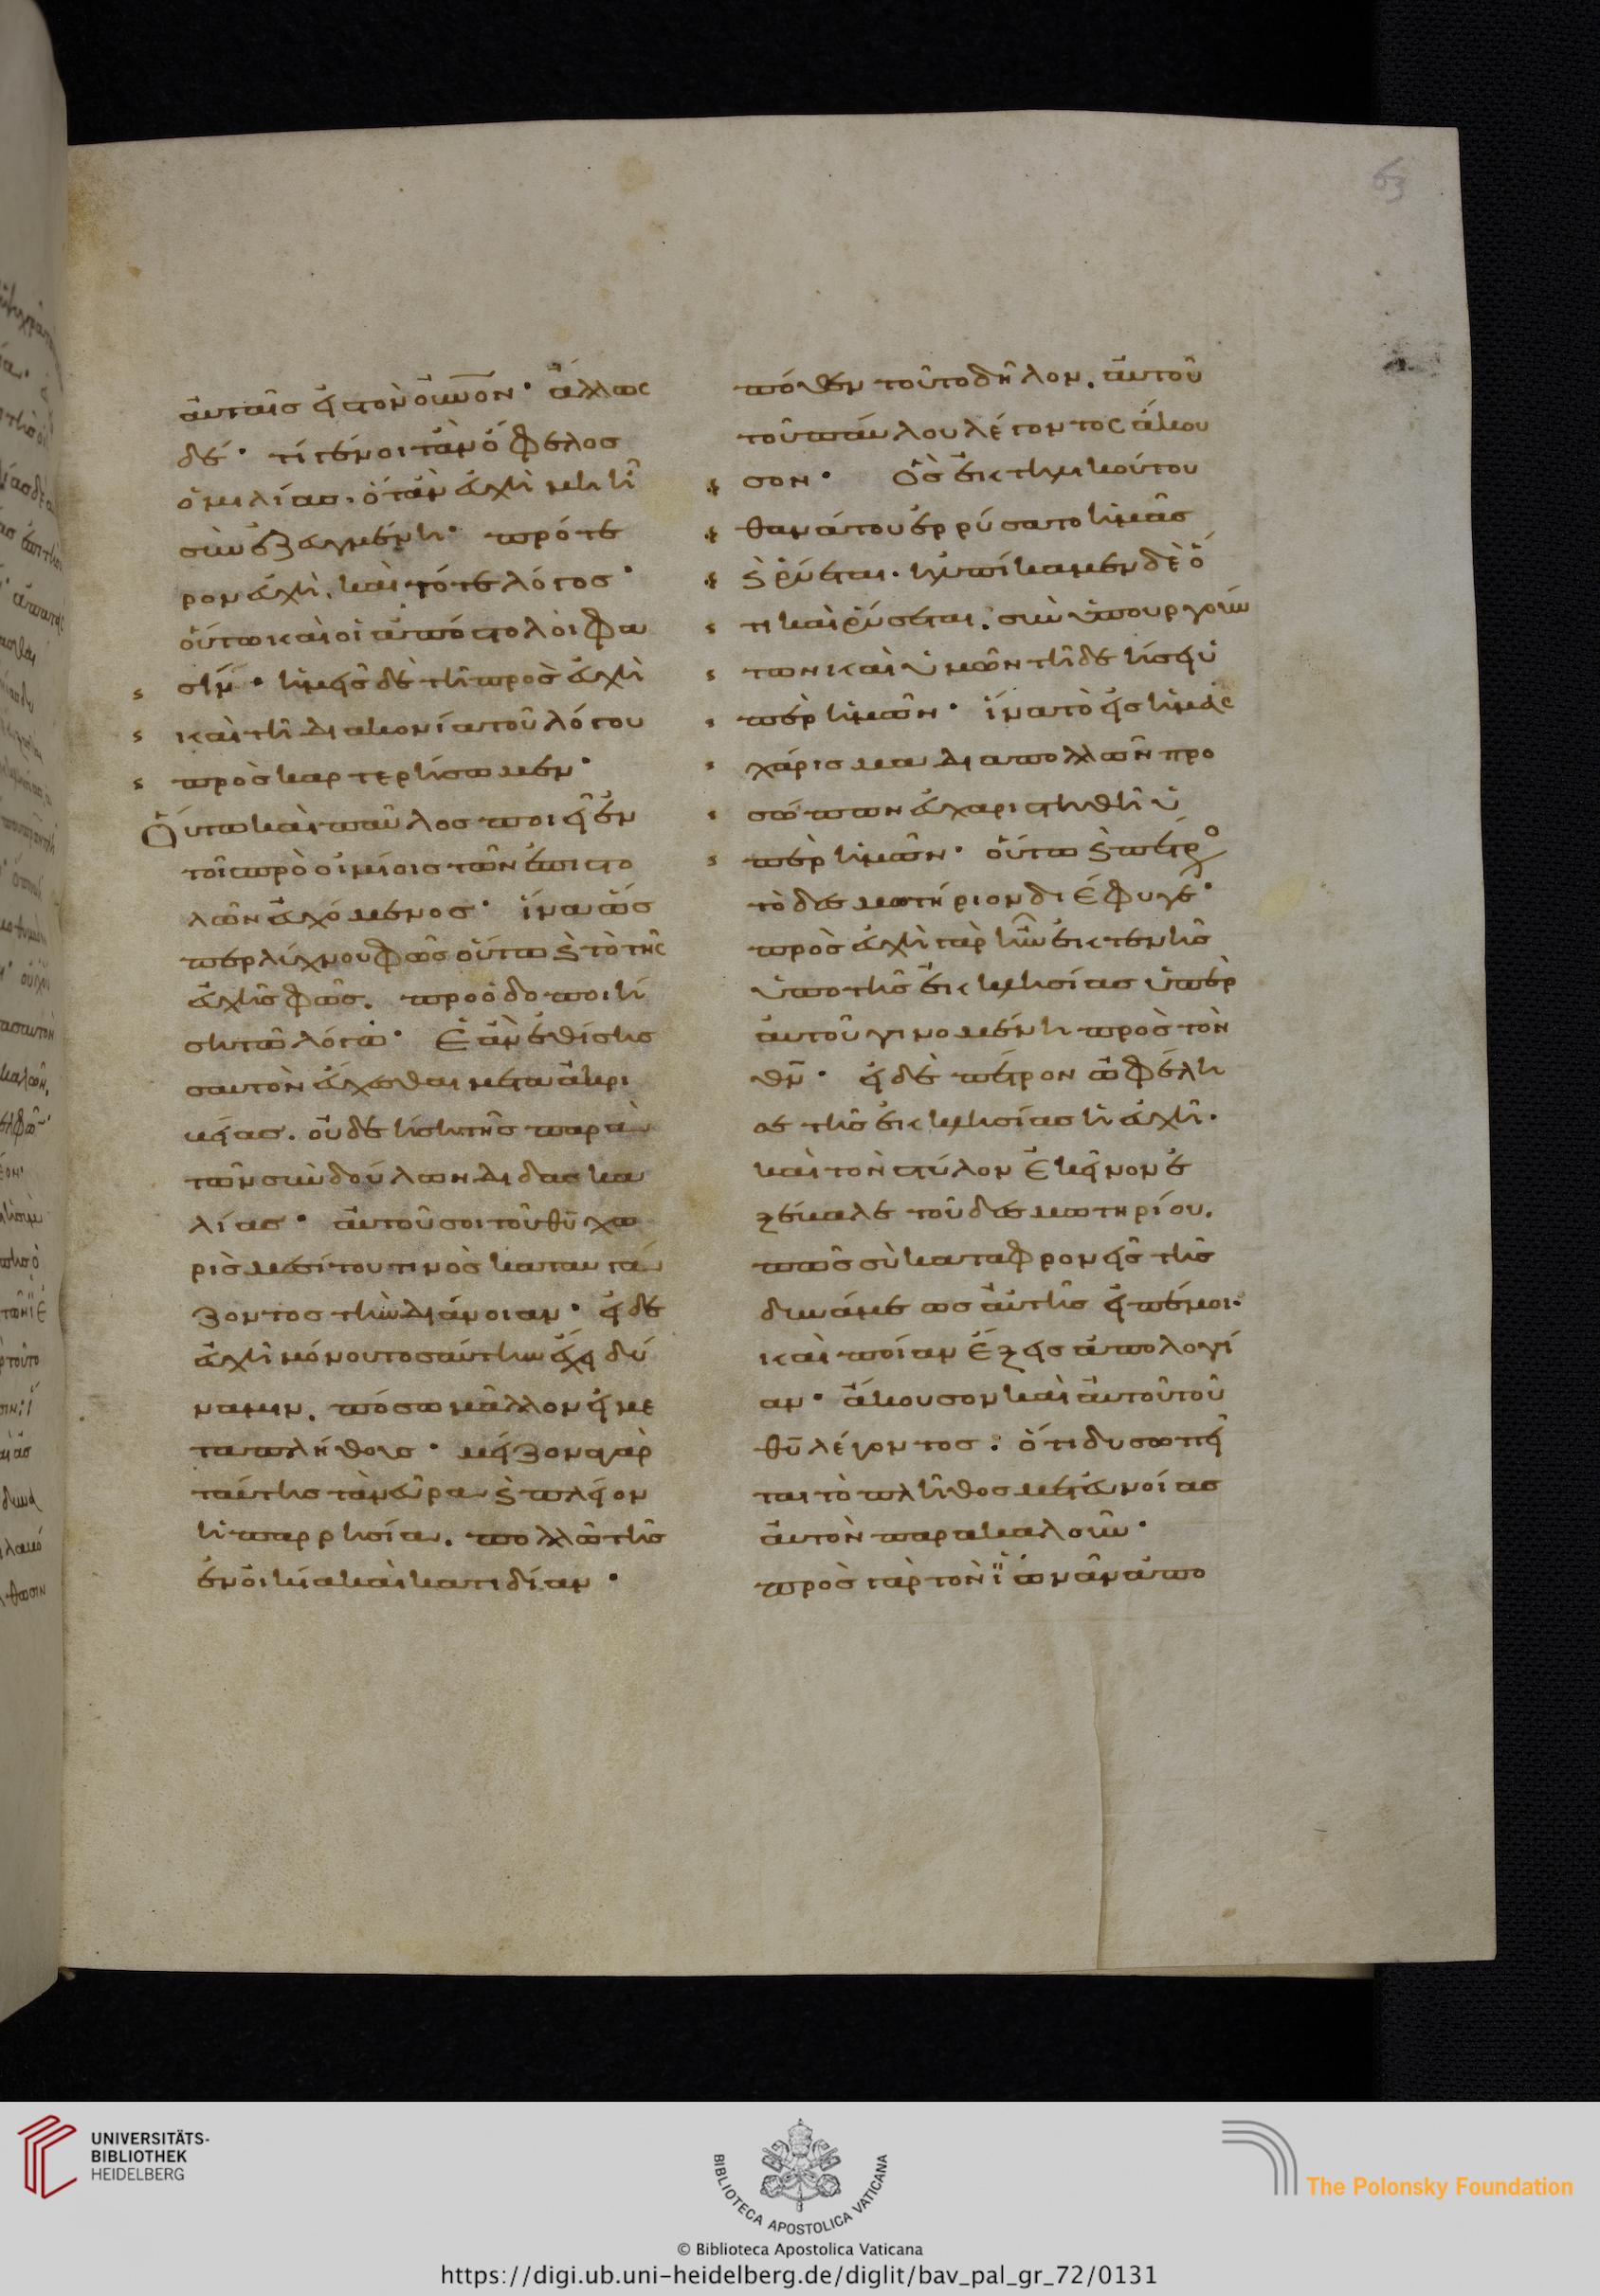 63
αὐταῖς εἰς τὸν οὐνον· ἄλλως
δέ· τί γέμοι τἂν ὄφελος
ὁμιλίας· ὅταν εὐχὴ μὴ ἦ
συνεζευγμένη· πρότε
ρον εὐχὴ, καὶ τότε λόγος·
οὕτω καὶ οἱ ἀπόστολοι φα
σίν· ἡμεῖς δὲ τῆ προσευχῆ
καὶ τῆ διακονία τοῦ λόγου
προσκαρτερήσωμεν·
Οὕτω καὶ παῦλος ποιεῖ ἐν
τοῖ προοιμίοις τῶν ἐπιστο
λῶν εὐχόμενος· ἵνα ὥσ
περ λύχνου φῶς οὕτω καὶ τὸ τῆς
εὐχῆς φῶς, προοδοποιή
ση τῶ λόγω· Ἐὰν ἐθίσης
σαυτὸν εὔχεσθαι μετὰ ἀκρι
βείας, οὐ δεήση τῆς παρὰ
τῶν συνδούλων διδασκα
λίας· αὐτοῦ σοι τοῦ θῦ χω
ρὶς μεσίτου τινὸς καταυγά
ζοντος τὴν διάνοιαν· εἰ δὲ
εὐχὴ μόνου τοσαύτην ἔχει δύ
ναμιν, πόσω μᾶλλον ἡ με
τὰ πλήθους· μείζων γὰρ
ταύτης τὰ νεῦρα καὶ πλείον
ἡ παρρησία, πολλῶ τῆς
ἐν οἰκία καὶ κατιδίαν·
πόθεν τοῦτο δῆλον, αὐτοῦ
τοῦ παύλου λέγοντος ἄκου
σον· Ὃς ἐκ τηλικούτου
θανάτου ἐρρύσατο ἡμᾶς
καὶ ῥύεται· ἠλπίκαμεν δὲ ὅ
τι καὶ ῥύσεται, συνυπουργούν
των καὶ ὑμῶν τῆ δεήσει ὑ
πὲρ ἡμῶν· ἵνα τὸ εἰς ἡμᾶς
χάρισμα διὰ πολλῶν προ
σώπων εὐχαριστηθῆ ὑ
πὲρ ἡμῶν· οὕτω καὶ πέτρο
τὸ δεσμωτήριον διέφυγε·
προσευχὴ γὰρ ἦν ἐκτενὴς
ὑπὸ τῆς ἐκκλησίας ὑπὲρ
αὐτοῦ γινομένη πρὸς τὸν
θν· εἰ δὲ πέτρον ὠφέλη
σε τῆς ἐκκλησίας ἡ εὐχὴ·
καὶ τὸν στύλον ἐκεῖνον ἐ
ξέβαλε τοῦ δεσμωτηρίου,
πῶς σὺ καταφρονεῖς τῆς
δυνάμεως αὐτῆς εἰπέ μοι·
καὶ ποίαν ἕξεις ἀπολογί
αν· ἄκουσον καὶ αὐτοῦ τοῦ
θῦ λέγοντος· ὅτι δυσωπεῖ
ται τὸ πλῆθος μετευνοίας
αὐτὸν παρακαλοῦν·
πρὸς γὰρ τὸν ἰωνᾶν ἀπο
UNIVERSITÄTS-
BIBLIOTHEK
HEIDELBERG
BIBLIOTECA APOSTOLICA VATICANA
The Polonsky Foundation
© Biblioteca Apostolica Vaticana
https://digi.ub.uni-heidelberg.de/diglit/bav_pal_gr_72/0131